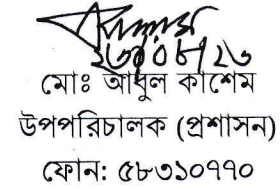 মোঃ আবুল কাশেম
উপপরিচালক (প্রশাসন)
ফোন: ৫৮৩১০৭৭০